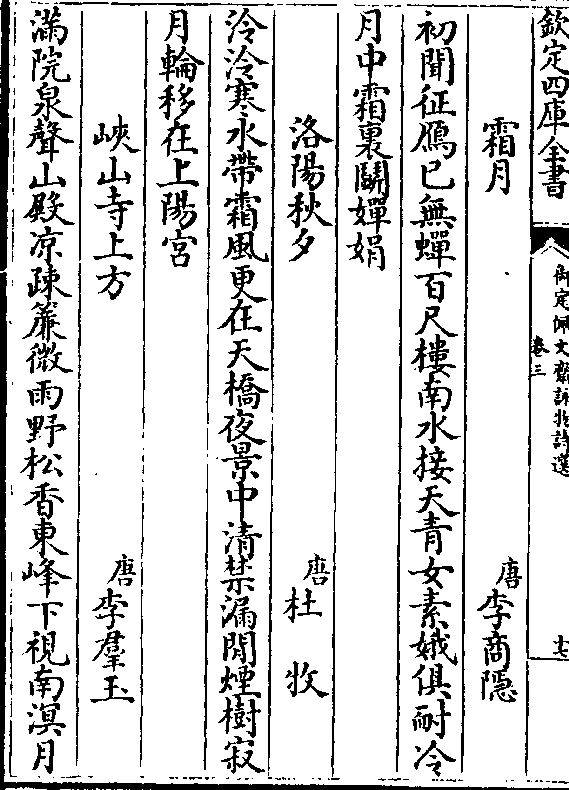 欽定四庫全書
御定佩文齋詠物詩選
卷三
十七
霜月
唐李商隱
初聞征鴈已無蟬百尺樓南水接天青女素娥俱耐冷
月中霜裏鬬嬋娟
洛陽秋夕
唐杜牧
泠泠寒水帶霜風更在天橋夜景中清禁漏閒煙樹寂
月輪移在上陽宮
峽山寺上方
唐李羣玉
滿院泉聲山殿凉疎簾微雨野松香東峰下視南溟月